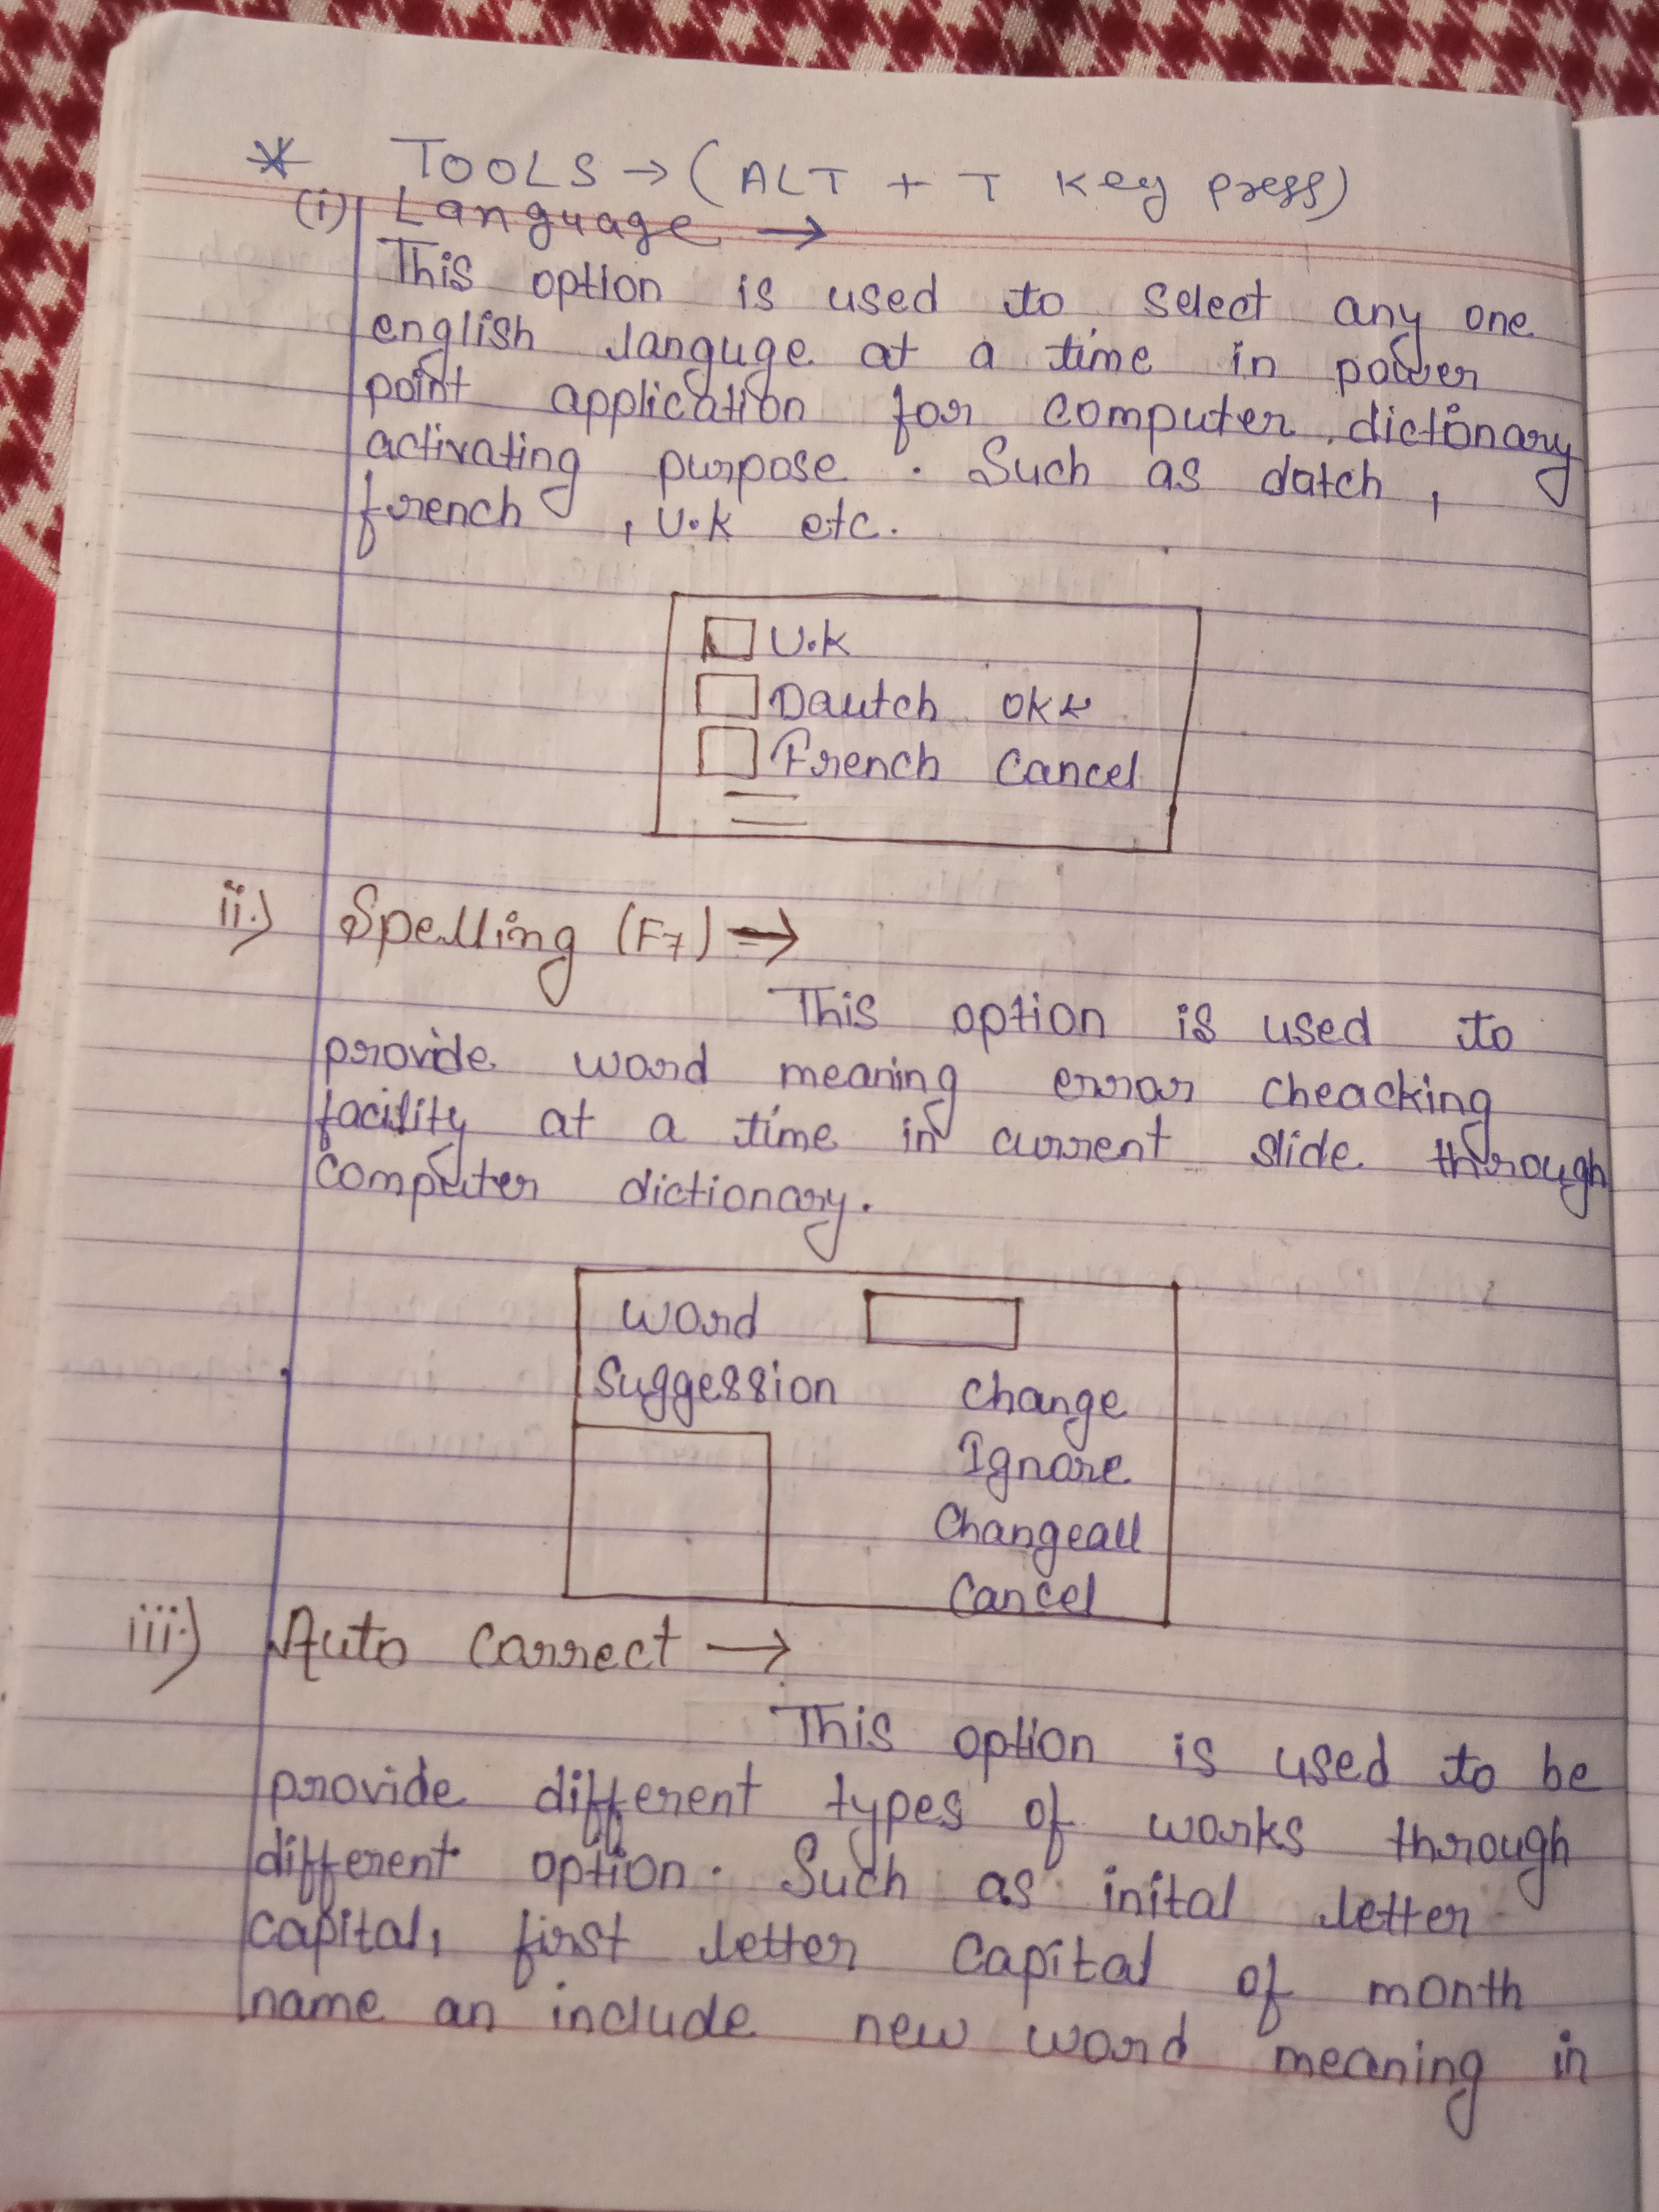 * TOOLS → (ALT + T Key press)
(i) Language →
This option is used to select any one
english languge at a time in power
point application for computer dictionary
activating purpose. Such as datch,
french, U.K etc.
U.K
Dautch OK
French Cancel
ii.) Spelling (F7) →
This option is used to
provide word meaning error cheacking
facility at a time in current slide through
computer dictionary.
Word
Suggession Change
Ignore
Changeall
Cancel
iii.) Auto Correct →
This option is used to be
provide different types of works through
different option. Such as inital letter
capital, first letter capital of month
name an include new word meaning in